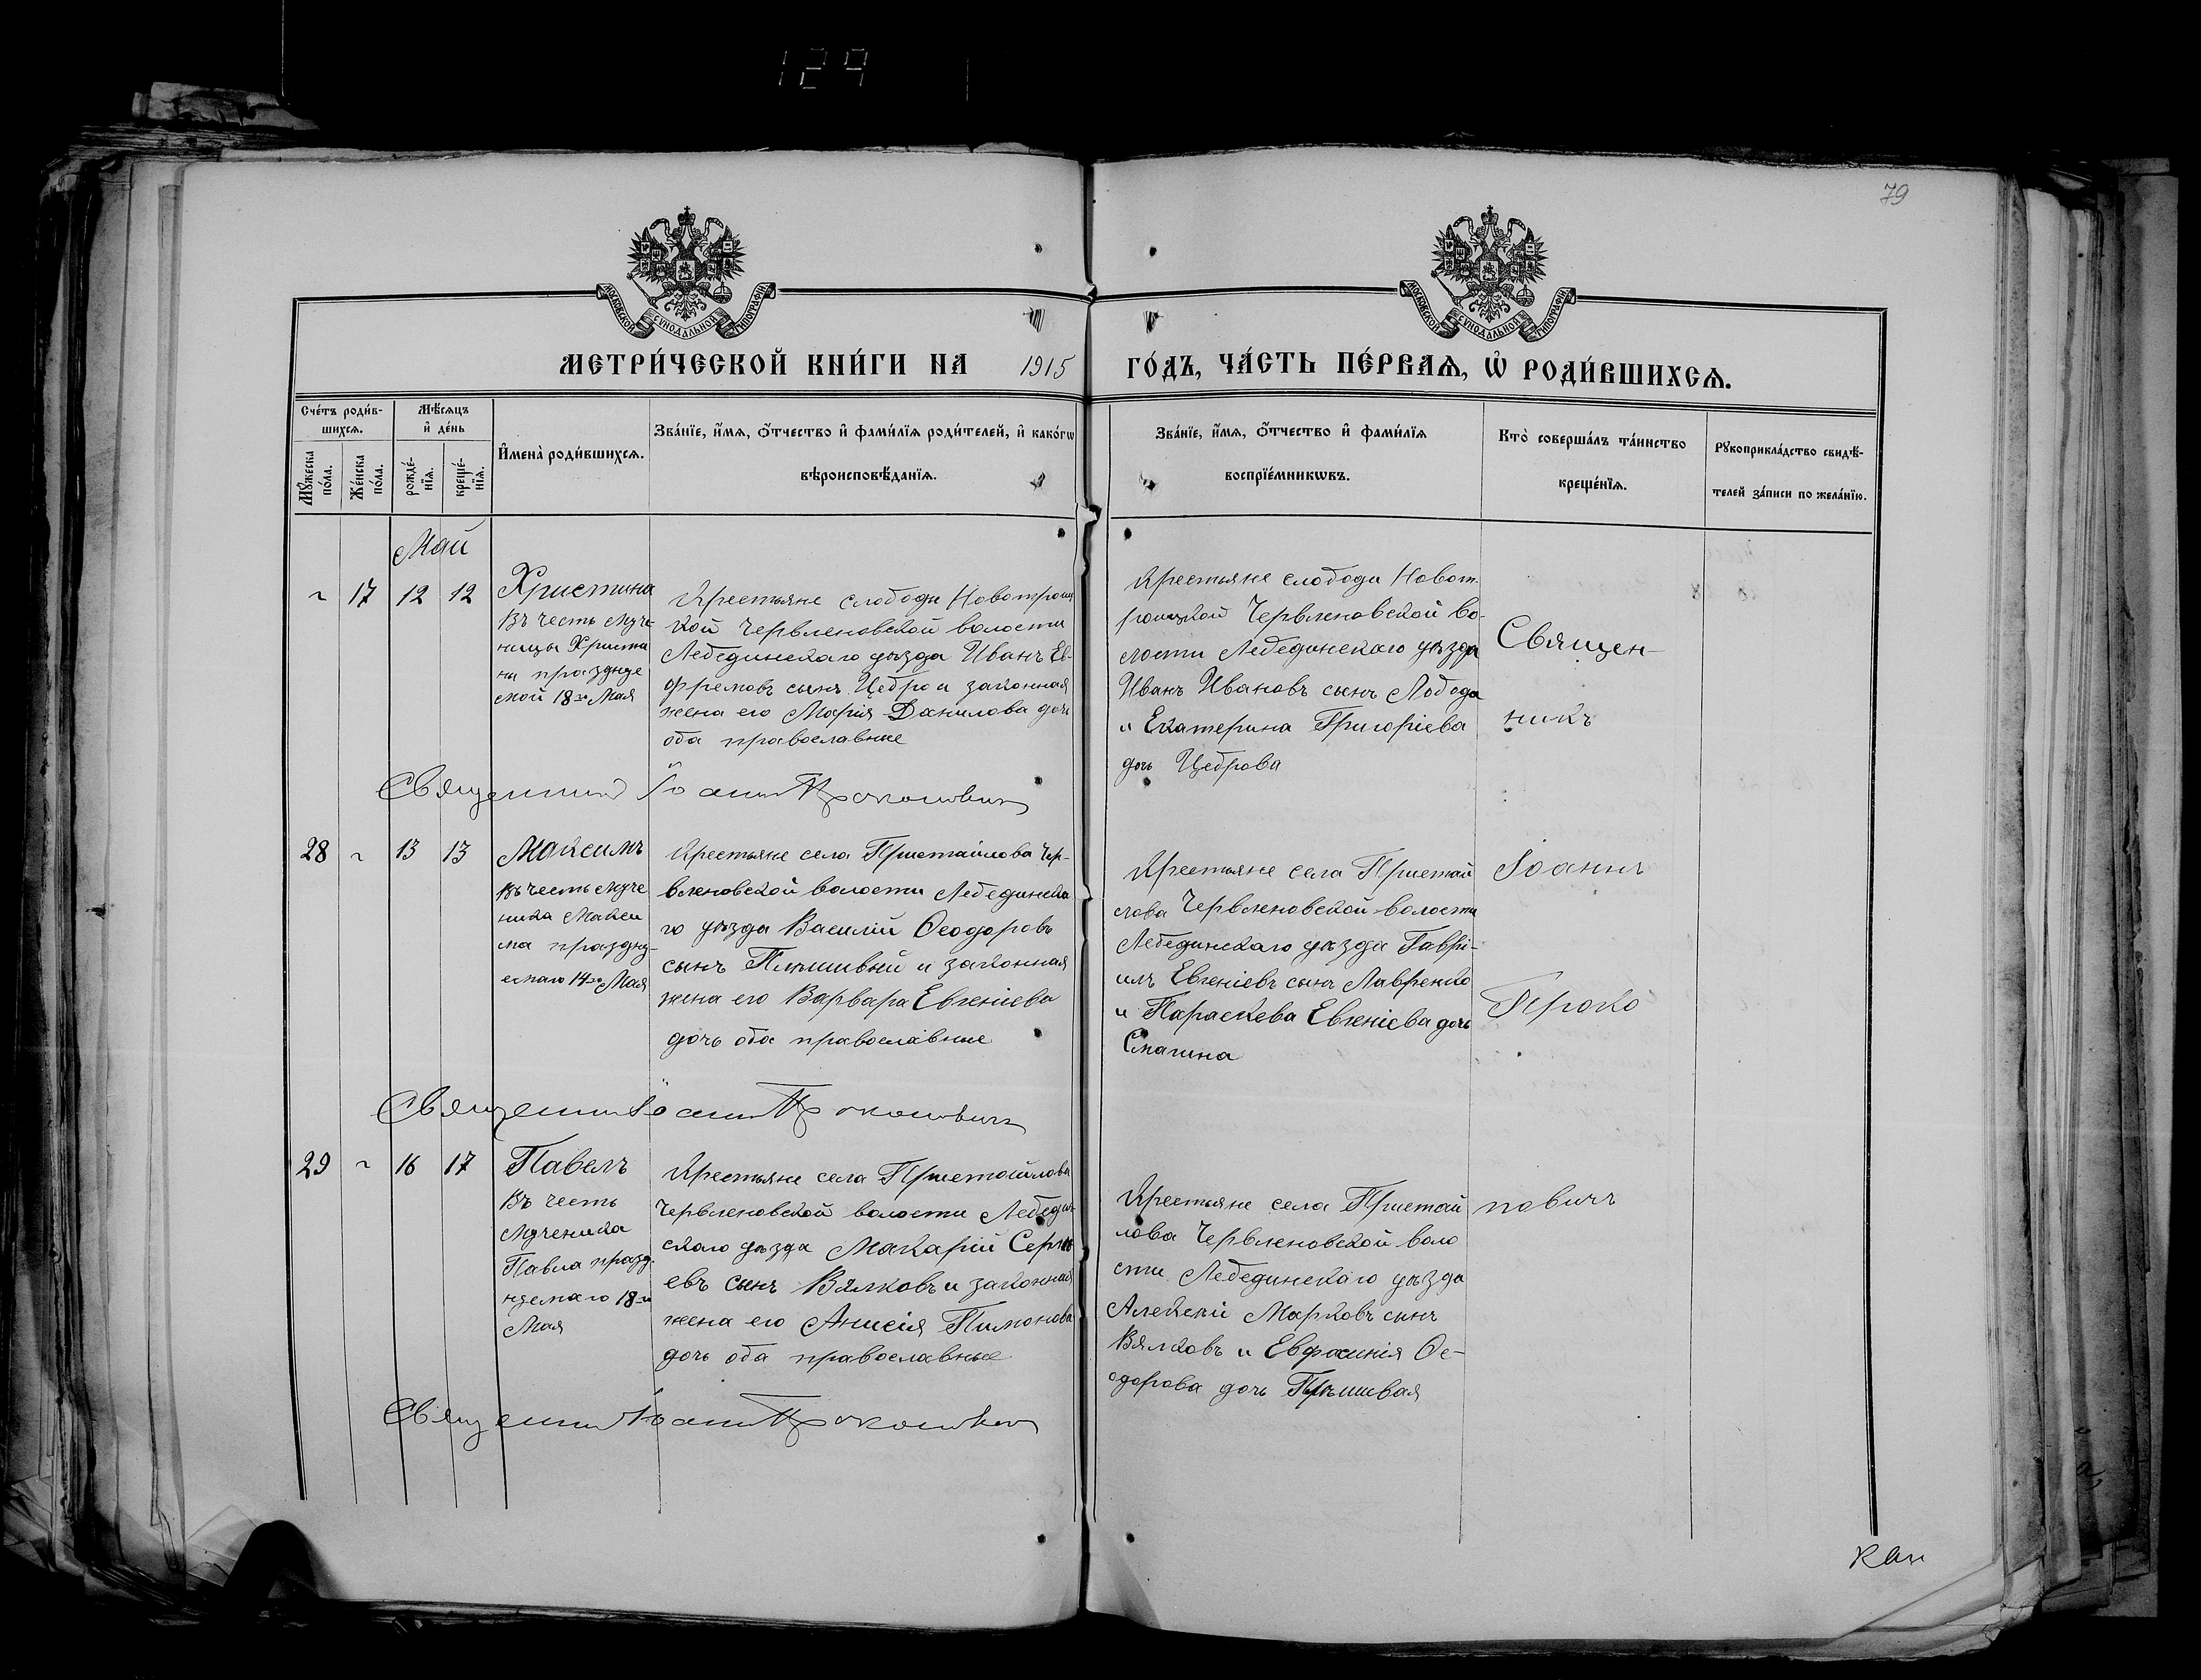 129
79
МОСКОВСКОЙ СУНОДАЛЬНОЙ ТИПОГРАФІИ
МОСКОВСКОЙ СУНОДАЛЬНОЙ ТИПОГРАФІИ
МЕТРИ́ЧЕСКОЙ КНИ́ГИ НА 1915 ГО́ДЪ, ЧА́СТЬ ПЕ́РВАѦ, Ѡ҆ РОДИ́ВШИХСѦ.
Сче́тъ роди́в-
шихсѧ.
Мѣ́сѧцъ
и҆ де́нь
Мꙋ́жеска по́ла.
Же́нска по́ла.
рожде́-
нїѧ.
креще́-
нїѧ.
И҆мена̀ роди́вшихсѧ.
Зва́нїе, и҆́мѧ, ѻ҆́тчество и҆ фами́лїѧ роди́телей, и҆ како́гѡ
вѣроисповѣ́данїѧ.
Зва́нїе, и҆́мѧ, ѻ҆́тчество и҆ фами́лїѧ
воспрїе́мникѡвъ.
Кто̀ соверша́лъ та́инство
креще́нїѧ.
Рꙋкоприкла́дство свидѣ́-
телей за́писи по жела́нїю.
Май
~ 17 12 12
Христина
Въ честь муче-
ницы Христи
ны празднуе
мой 18го Мая
Крестьяне слободы Новотроиц
кой Червленовской волости
Лебединскаго уѣзда Иванъ Ев-
фремовъ сынъ Цебро и законная
жена его Марія Данилова дочь
оба православные
Крестьяне слободы Новот-
роицкой Червленовской во-
лости Лебединскаго уѣзда
Иванъ Ивановъ сынъ Лобода
и Екатерина Григоріева
дочь Цеброва
Священ-
никъ
Священникъ Іоаннъ Прокоповичъ
28 ~ 13 13
Максимъ
Въ честь муче
ника Макси
ма праздну-
емаго 14го Мая
Крестьяне села Пристайлова Чер-
вленовской волости Лебединска
го уѣзда Василій Ѳеодоровъ
сынъ Плѣшивый и законная
жена его Варвара Евгеніева
дочь оба православные
Крестьяне села Пристай
лова Червленовской волости
Лебединскаго уѣзда Гаврі-
илъ Евгеніевъ сынъ Лавренко
и Параскева Евгеніева дочь
Смагина
Іоаннъ
Проко
Священникъ Іоаннъ Прокоповичъ
29 ~ 16 17
Павелъ
Въ честь
Мученика
Павла празд-
нуемаго 18го
Мая
Крестьяне села Пристайлова
Червленовской волости Лебедин
скаго уѣзда Макарій Серге
евъ сынъ Вялковъ и законная
жена его Анисія Пимонова
дочь оба православные
Крестьяне села Пристай
лова Червленовской воло
сти Лебединскаго уѣзда
Алексѣй Марковъ сынъ
Вялковъ и Евфросинія Ѳе-
одорова дочь Плѣшивая
повичъ
Священникъ Іоаннъ Прокоповичъ